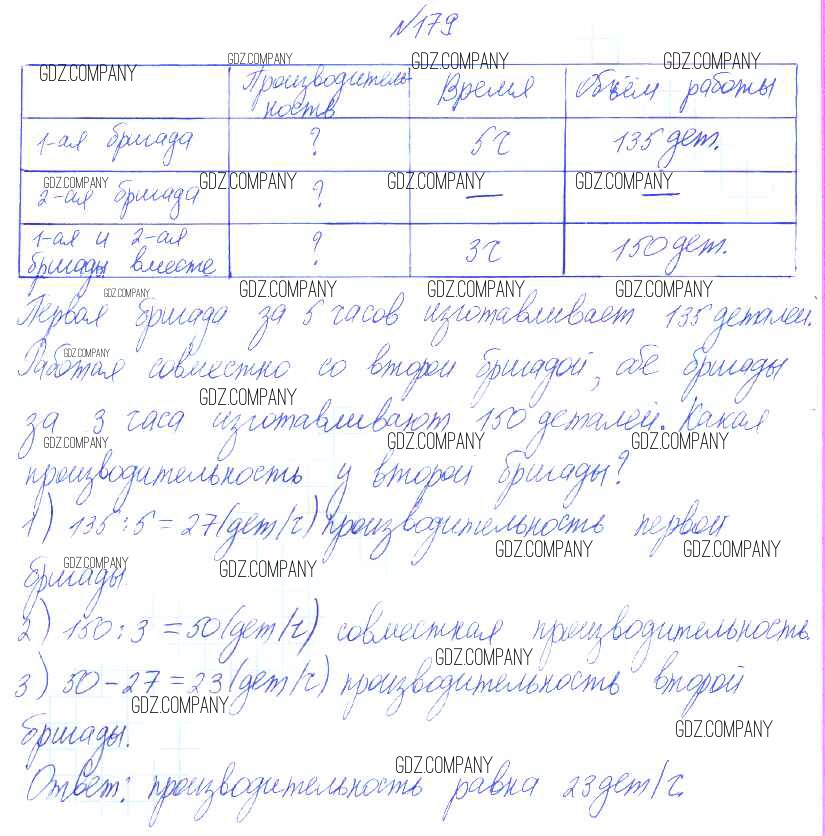 №179
GDZ.COMPANY GDZ.COMPANY GDZ.COMPANY GDZ.COMPANY
Производитель-ность Время Объём работы
1-ая бригада ? 5ч 135 дет.
GDZ.COMPANY GDZ.COMPANY GDZ.COMPANY GDZ.COMPANY
2-ая бригада ? — —
1-ая и 2-ая бригады вместе ? 3ч 150 дет.
GDZ.COMPANY GDZ.COMPANY GDZ.COMPANY GDZ.COMPANY
Первая бригада за 5 часов изготавливает 135 деталей.
GDZ.COMPANY
Работая совместно со второй бригадой, обе бригады
GDZ.COMPANY
за 3 часа изготавливают 150 деталей. Какая
GDZ.COMPANY GDZ.COMPANY GDZ.COMPANY
производительность у второй бригады?
1) 135 : 5 = 27 (дет/ч) производительность первой
GDZ.COMPANY GDZ.COMPANY
бригады.
GDZ.COMPANY GDZ.COMPANY
2) 150 : 3 = 50 (дет/ч) совместная производительность.
GDZ.COMPANY
3) 50 - 27 = 23 (дет/ч) производительность второй
GDZ.COMPANY
бригады.
GDZ.COMPANY
GDZ.COMPANY
Ответ: производительность равна 23 дет/ч.